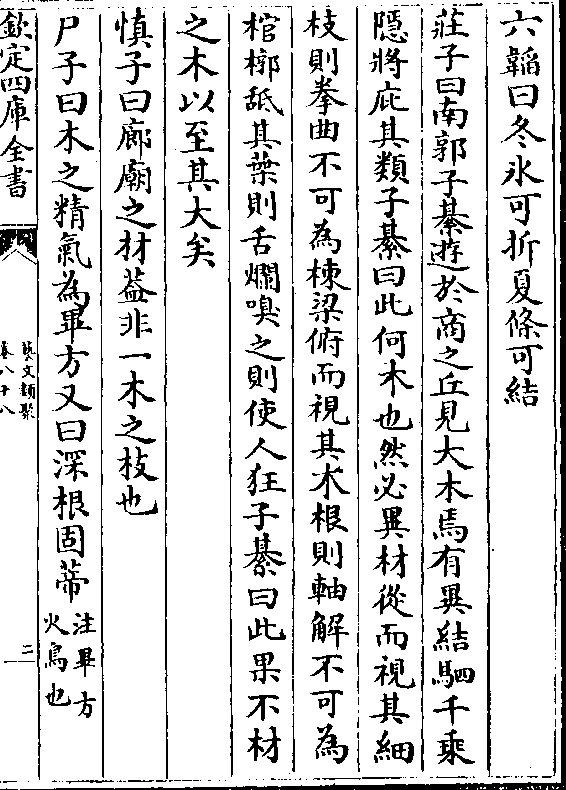 六韜曰冬氷可折夏條可結
莊子曰南郭子綦遊於商之丘見大木焉有異結駟千乘
隱將庇其類子綦曰此何木也然必異材從而視其細
枝則拳曲不可為棟梁俯而視其木根則軸解不可為
棺槨舐其葉則舌爛嗅之則使人狂子綦曰此果不材
之木以至其大矣
慎子曰廊廟之材葢非一木之枝也
尸子曰木之精氣為畢方又曰深根固蒂注畢方
火鳥也
欽定四庫全書
藝文類聚
卷八十八
二